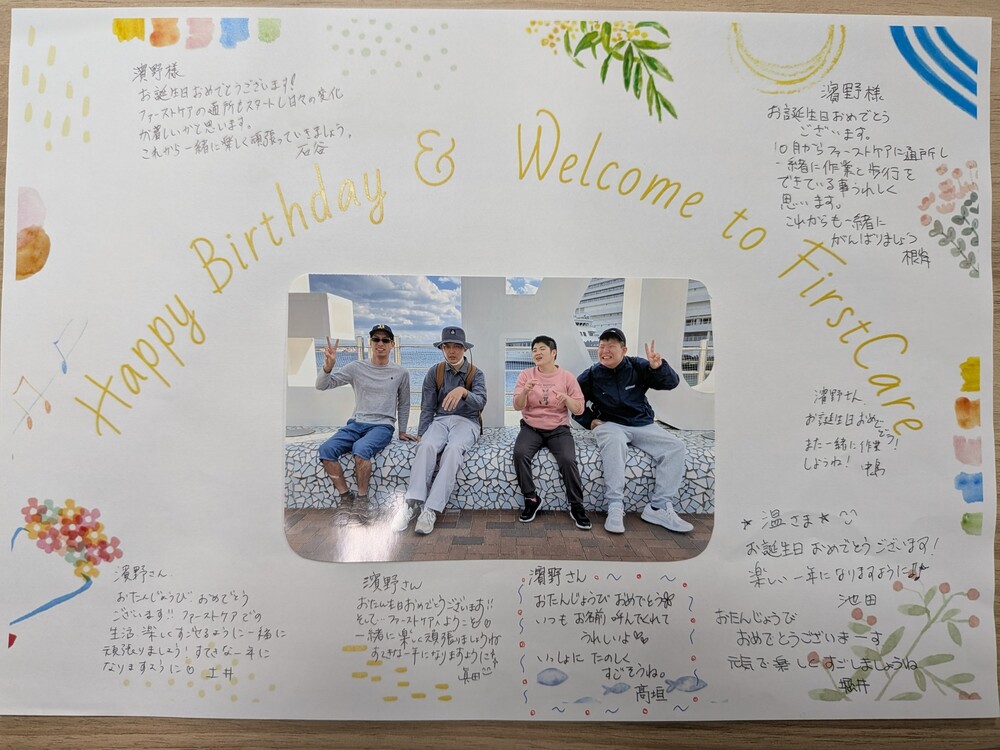 Happy Birthday & Welcome to FirstCare
濱野様
お誕生日おめでとうございます!
ファーストケアの通所もスタートし日々の変化
が著しいかと思います。
これから一緒に楽しく頑張っていきましょう。
石谷
濱野様
お誕生日おめでとう
ございます。
10月からファーストケアに通所し
一緒に作業と歩行を
できている事うれしく
思います。
これからも一緒に
がんばりましょう
根岸
濱野さん
お誕生日おめで
とう!
また一緒に作業
しようね!
中島
★温さま★
お誕生日おめでとうございます!
楽しい一年になりますように
池田
濱野さん
おたんじょうび おめでとう
ございます!! ファーストケアでの
生活 楽しくすごせるように一緒に
頑張りましょう! すてきな一年に
なりますように 土井
濱野さん
お誕生日おめでとうございます!!
そして、ファーストケアへようこそ
一緒に楽しく頑張りましょうね
すてきな一年になりますように
眞田
濱野さん
おたんじょうび おめでとう
いつも お名前 呼んでくれて
うれしいよ
いっしょに たのしく
すごそうね。
髙垣
おたんじょうび
おめでとうございまーす
元気で楽しくすごしましょうね
堀井